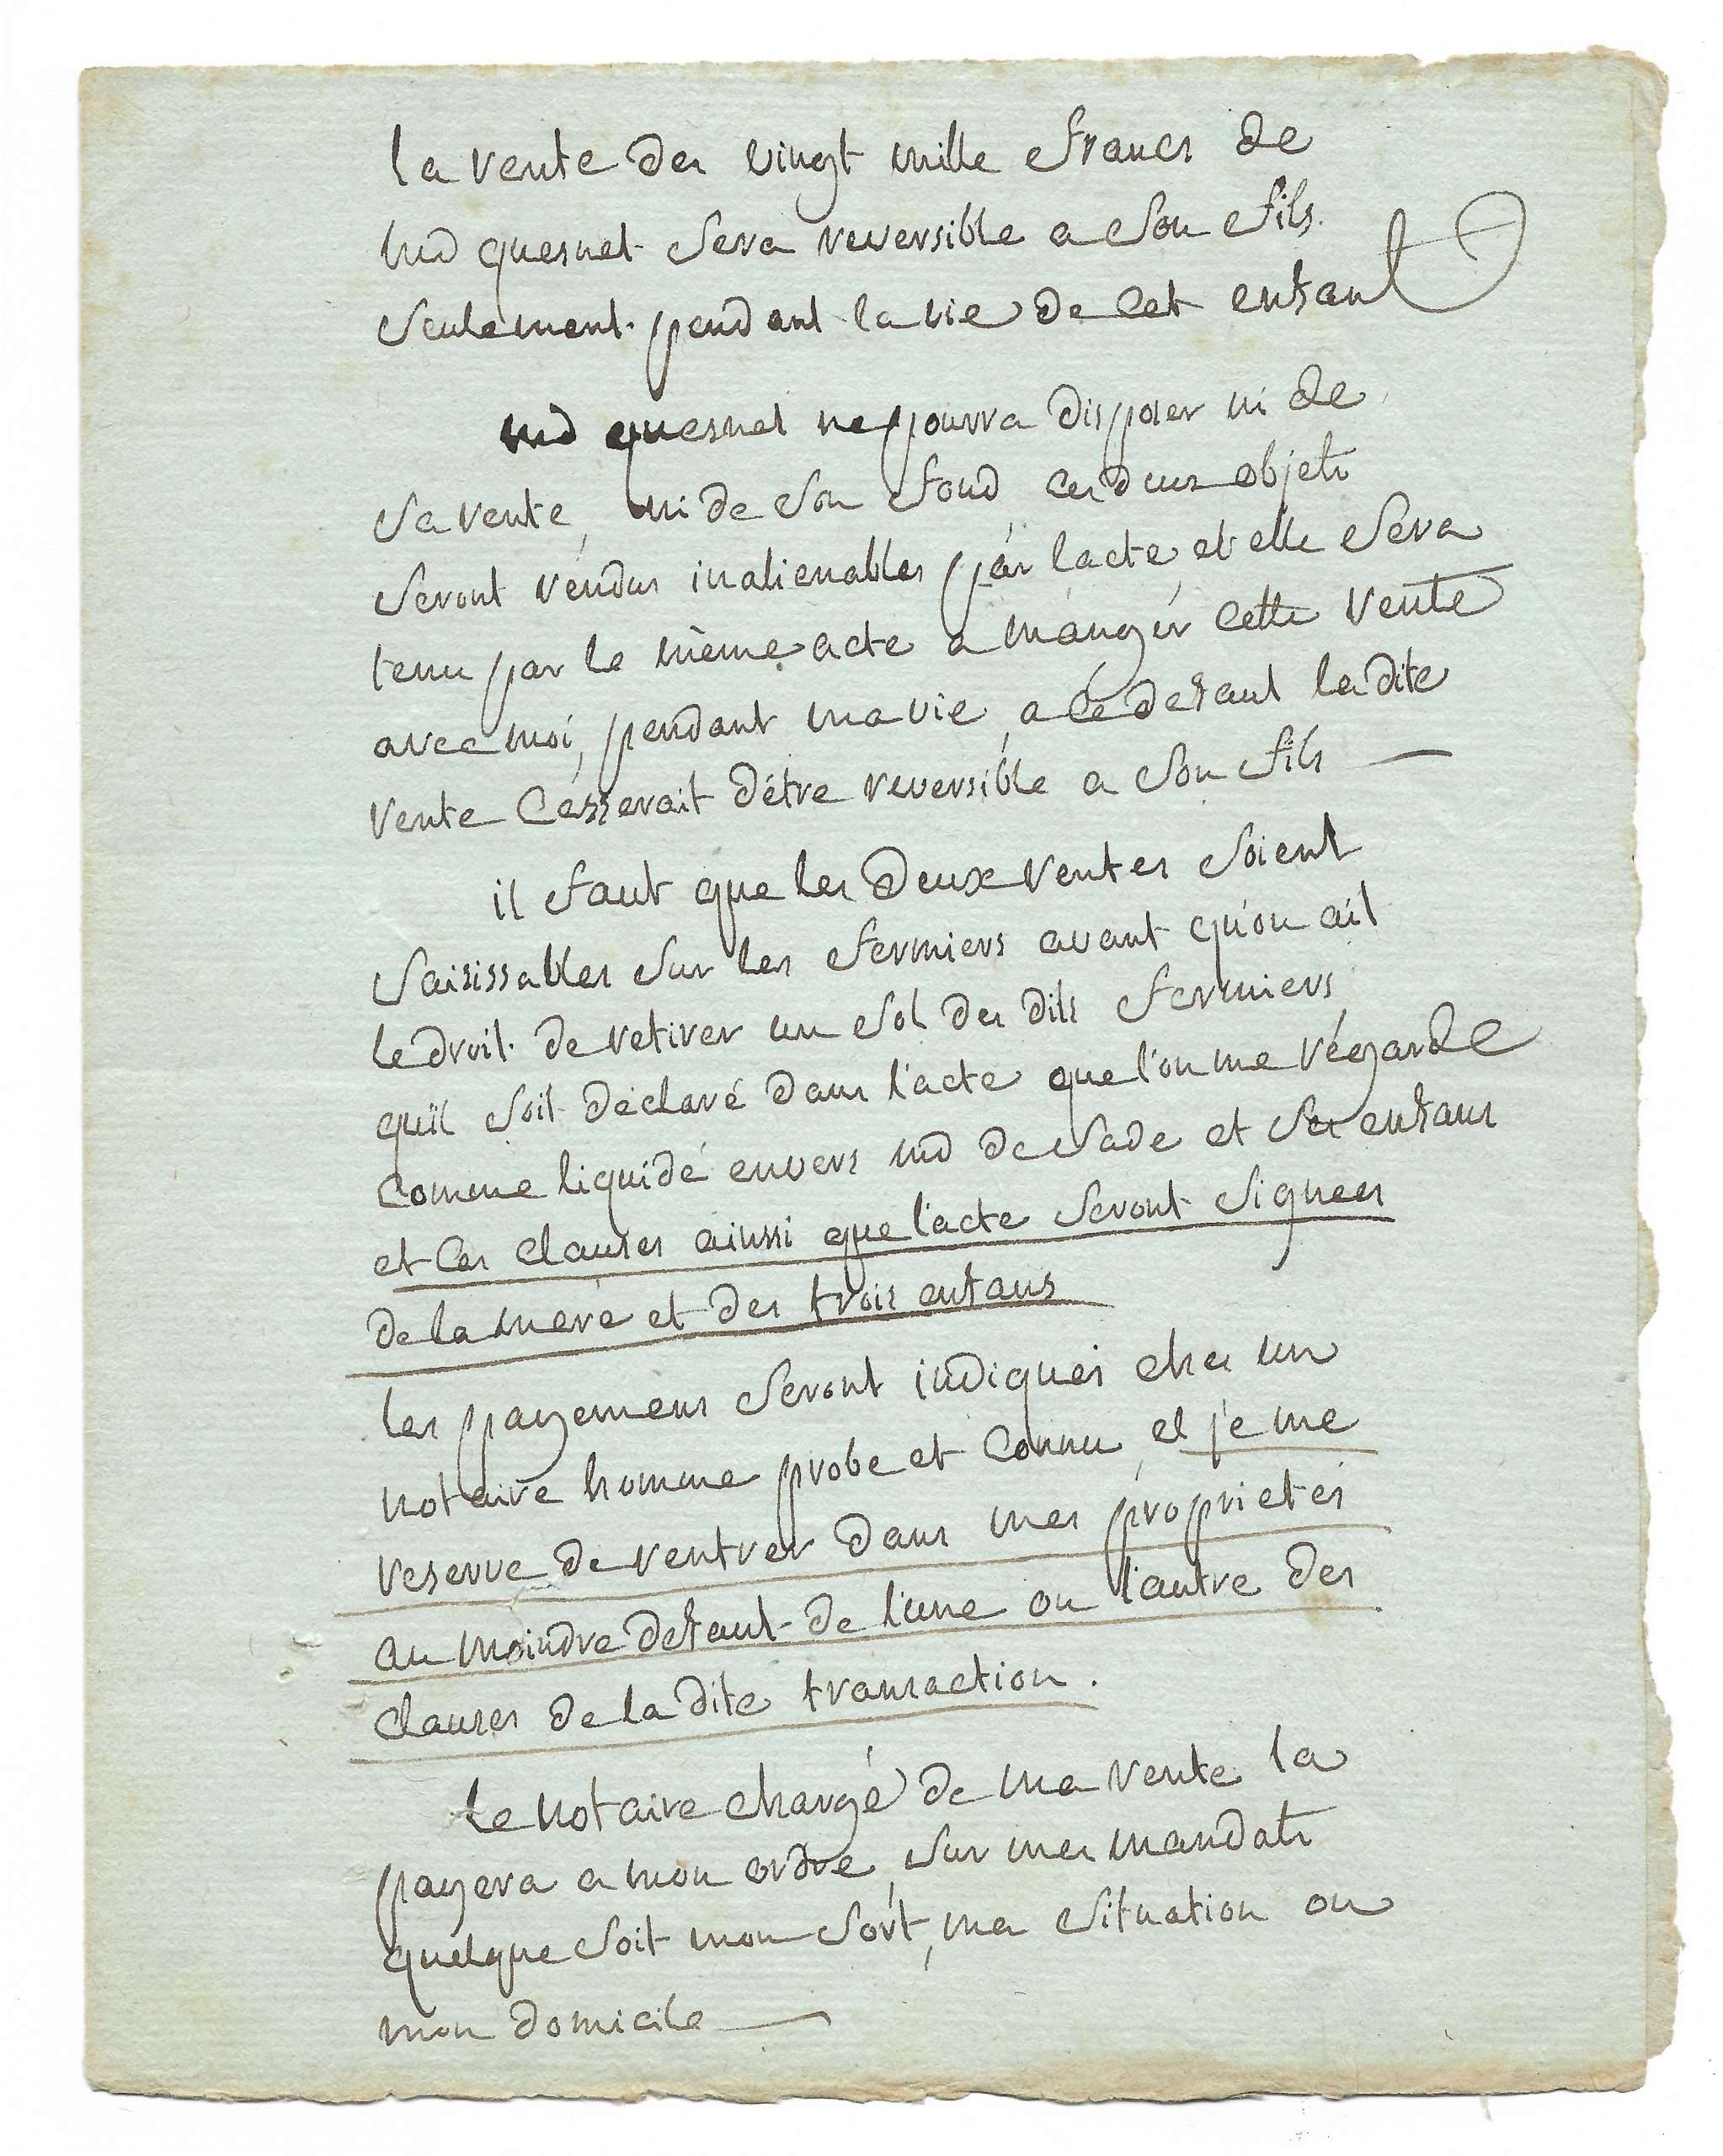 la rente des vingt mille francs de
md quesnet sera reversible a son fils.
seulement pendant la vie de cet enfant
md quesnet ne pourra disposer ni de
sa rente, ni de son fond ces deux objets
seront réndus inalienables par lacte et elle sera
tenu par le même acte a manger cette rente
avec moi, pendant ma vie, a cé defaut la dite
rente cesserait d'étre reversible a son fils —
il faut que les deux rentes soient
saisissables sur les fermiers avant qu'on ait
le droit de retirer un sol des dits fermiers,
quil soit déclaré dans l'acte que l'on me régarde
comme liquidé envers md de sade et ses enfans
et ces clauses ainssi que l'acte seront signees
de la mere et des trois enfans
les payemens seront indiqués ches un
notaire homme probe et connu, et je me
reserve de rentrer dans mes proprietés
au moindre defaut de l'une ou l'autre des
clauses de la dite transaction.
le notaire chargé de ma rente la
payera a mon ordre, sur mes mandats
quelque soit mon sort, ma situation ou
mon domicile —